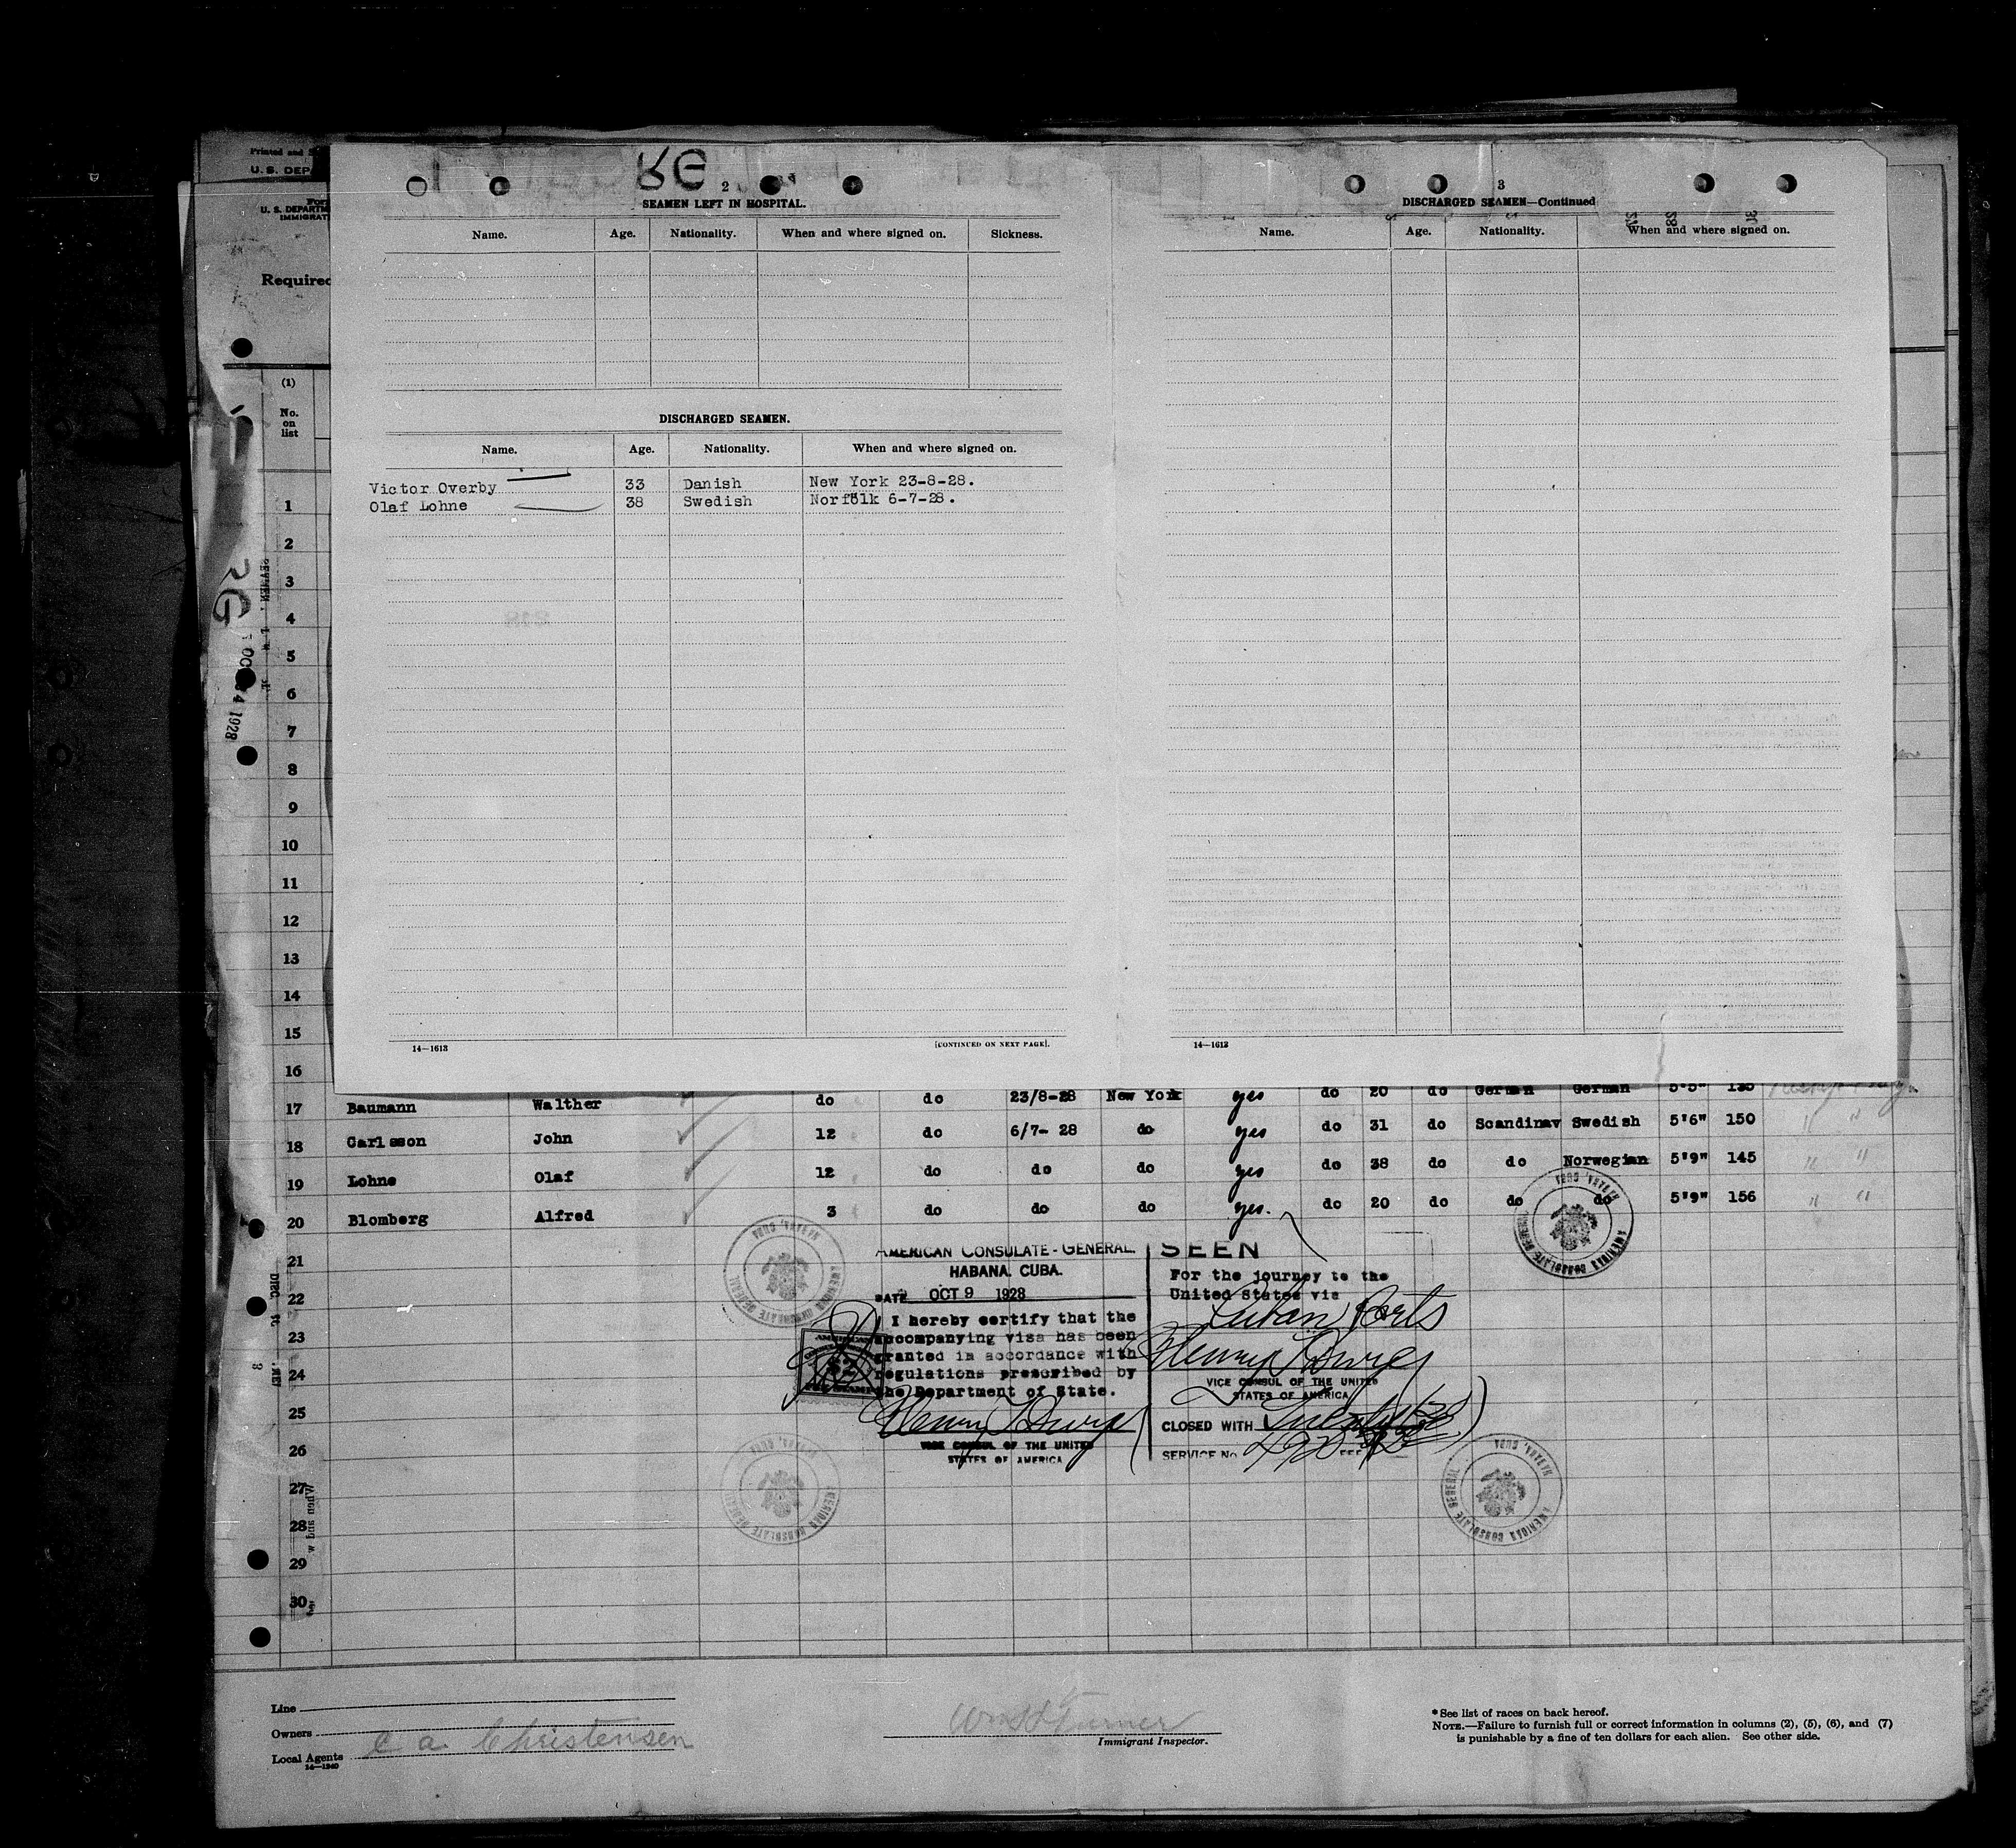 Printed and S
U. S. DEP
For
U. S. DEPARTM
IMMIGRAT
Required
(1)
No.
on
list
RG
2
SEAMEN LEFT IN HOSPITAL.
Name. Age. Nationality. When and where signed on. Sickness.
DISCHARGED SEAMEN.
Name. Age. Nationality. When and where signed on.
Victor Overby 33 Danish New York 23-8-28.
Olaf Lohne 38 Swedish Norfolk 6-7-28.
14—1613 [CONTINUED ON NEXT PAGE].
3
DISCHARGED SEAMEN—Continued
Name. Age. Nationality. When and where signed on.
14—1613
RG
OC 4 1928
1
2
3
4
5
6
7
8
9
10
11
12
13
14
15
16 German German 5'5" 135
17 Baumann Walther do do 23/8-28 New York yes do 20 do
18 Carlsson John 12 do 6/7- 28 do yes do 31 do Scandinav Swedish 5'6" 150 " "
19 Lohne Olaf 12 do do do yes do 38 do do Norwegian 5'9" 145 " "
20 Blomberg Alfred 3 do do do yes. do 20 do do do 5'9" 156 " "
21
22
23
24
25
26
27
28
29
30
AMERICAN CONSULATE-GENERAL.
HABANA, CUBA.
DATE OCT 9 1928
I hereby certify that the
accompanying visa has been
granted in accordance with
regulations prescribed by
the Department of State.
VICE CONSUL OF THE UNITED
STATES OF AMERICA
SEEN
For the journey to the
United States via
Cuban Ports
VICE CONSUL OF THE UNITED
STATES OF AMERICA
CLOSED WITH
SERVICE No. FEE
AMERICAN CONSULATE GENERAL HABANA, CUBA
AMERICAN CONSULATE GENERAL HABANA, CUBA
AMERICAN CONSULATE GENERAL HABANA, CUBA
AMERICAN CONSULATE GENERAL HABANA, CUBA
Line
Owners
Local Agents C a Christensen
14—1240
Wm H Turner
Immigrant Inspector.
* See list of races on back hereof.
NOTE.—Failure to furnish full or correct information in columns (2), (5), (6), and (7)
is punishable by a fine of ten dollars for each alien. See other side.